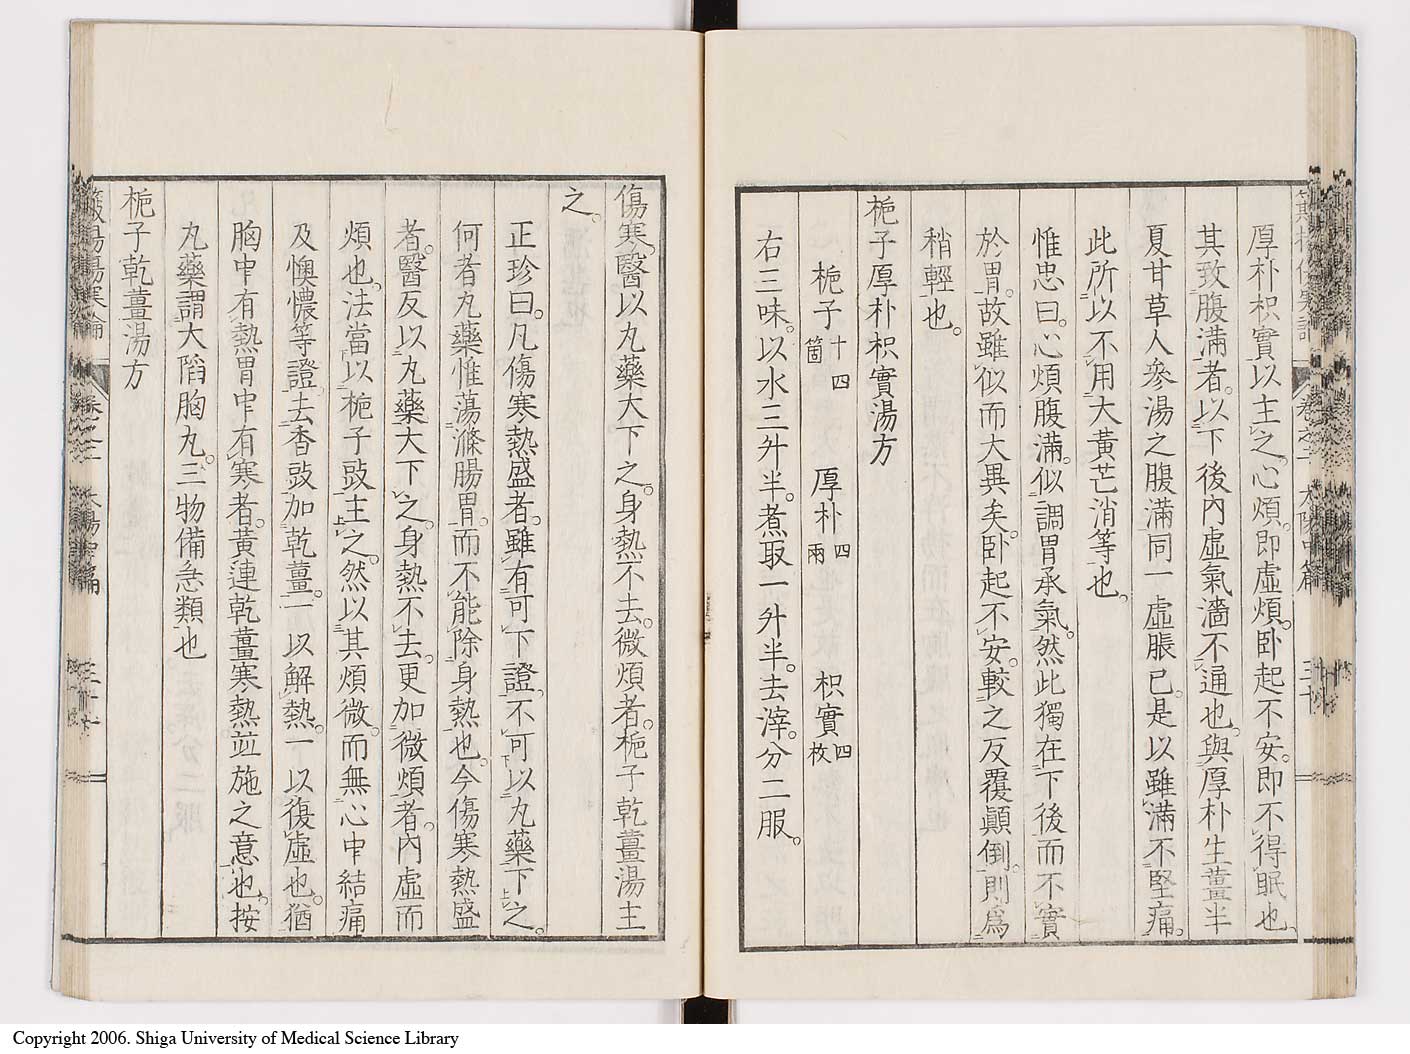 厚朴枳實以主之。心煩。即虛煩。臥起不安。即不得眠也。
其致腹滿者。以下後內虛氣濇不通也。與厚朴生薑半
夏甘草人參湯之腹滿同一虛脹已。是以雖滿不堅痛。
此所以不用大黃芒消等也。
惟忠曰。心煩腹滿。似調胃承氣。然此獨在下後而不實
於胃。故雖似而大異矣。臥起不安。較之反覆顛倒。則爲
稍輕也。
梔子厚朴枳實湯方
梔子十四箇 厚朴四兩 枳實四枚
右三味。以水三升半。煮取一升半。去滓。分二服。
傷寒。醫以丸藥大下之。身熱不去。微煩者。梔子乾薑湯主
之。
正珍曰。凡傷寒熱盛者。雖有可下證。不可以丸藥下之。
何者丸藥惟蕩滌腸胃。而不能除身熱也。今傷寒熱盛
者。醫反以丸藥大下之。身熱不去。更加微煩者。內虛而
煩也。法當以梔子豉主之。然以其煩微。而無心中結痛
及懊憹等證。去香豉加乾薑。一以解熱。一以復虛也。猶
胸中有熱胃中有寒者。黃連乾薑寒熱並施之意也。按
丸藥謂大陷胸丸。三物備急類也
梔子乾薑湯方
Copyright 2006. Shiga University of Medical Science Library